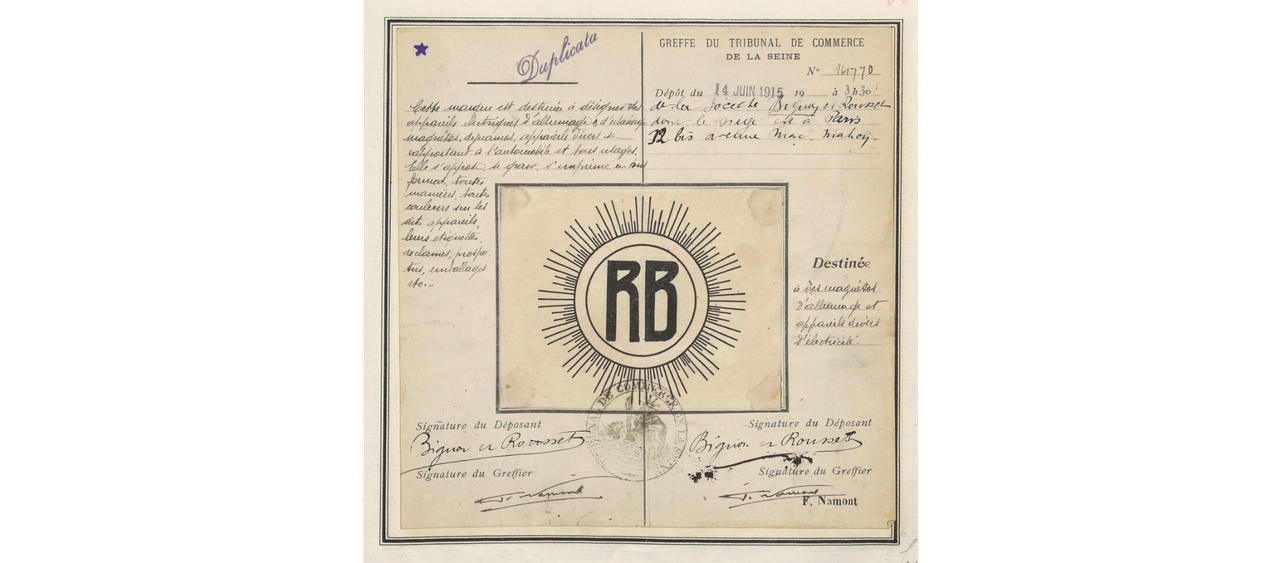 Duplicata
Cette marque est destinée à désigner des
appareils électriques d'allumage & d'éclairage
magnétos, dynamos, appareils divers se
rapportant à l'automobile et tous usages.
Elle s'appose, se grave, s'imprime en tous
formats, toutes
manières, toutes
couleurs sur les
dits appareils,
leurs étiquettes,
réclames, prospec-
tus, emballages
etc...
GREFFE DU TRIBUNAL DE COMMERCE
DE LA SEINE
N° 161770
Dépôt du 14 JUIN 1915 19 à 3h30'
de la Société Bignon et Rousset
dont le siège est à Paris
12 bis avenue Mac-Mahon.
RB
Destinée
à des magnétos
d'allumage et
appareils divers
d'électricité.
TRIBUNAL DE COMMERCE DE LA SEINE
Signature du Déposant
Bignon et Rousset
Signature du Greffier
F. Namont
Signature du Déposant
Bignon et Rousset
Signature du Greffier
F. Namont
F. Namont